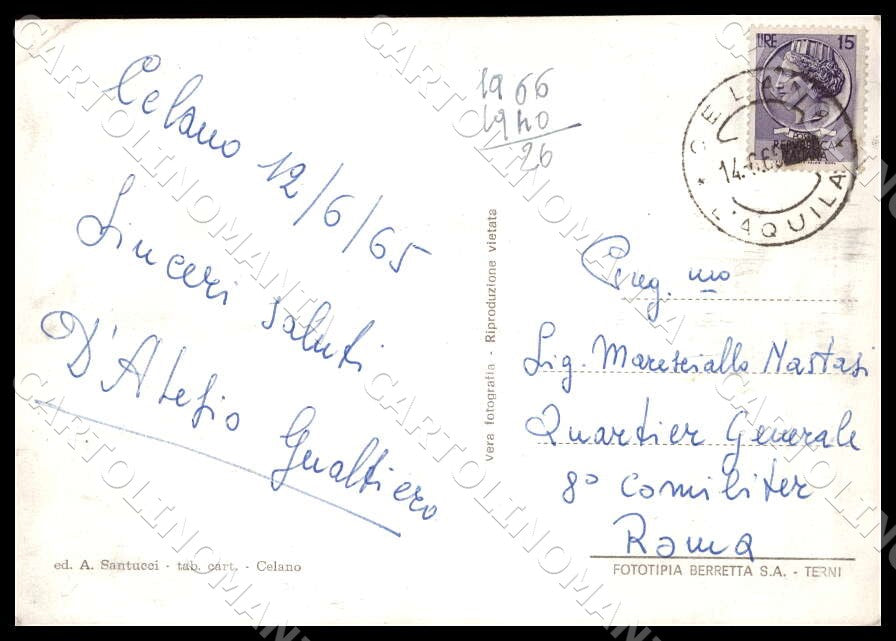 Celano 12/6/65
Sinceri saluti
D'Alesio Gualtiero
ed. A. Santucci - tab. cart. - Celano
1966
1940
26
vera fotografia - Riproduzione vietata
LIRE 15
* CELANO * L'AQUILA
14.6.65
Preg.mo
Sig. Maresciallo Nastasi
Quartier Generale
8º Comiliter
Roma
FOTOTIPIA BERRETTA S.A. - TERNI
CARTOLINOMANIA